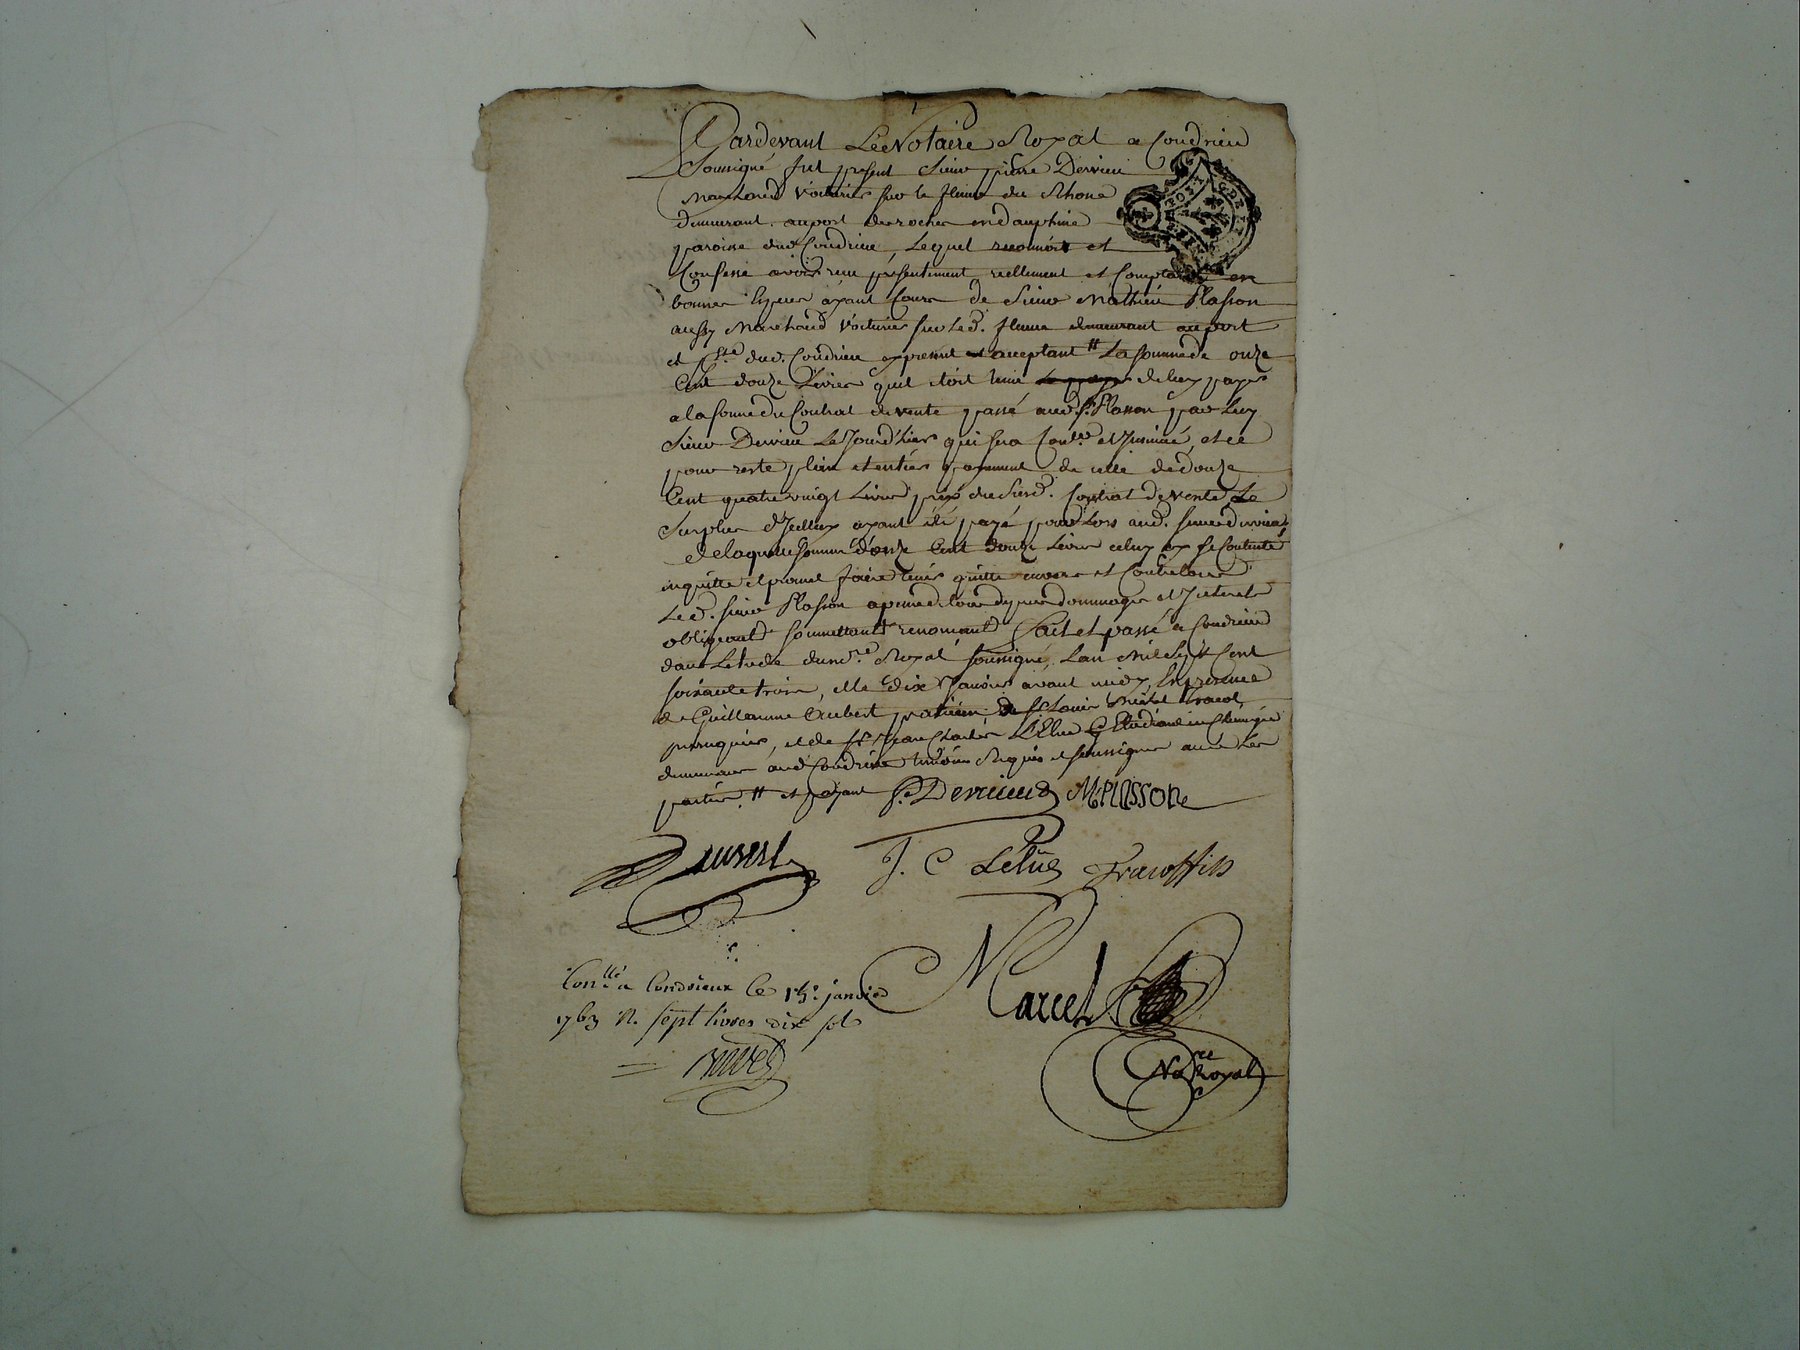 Pardevant Le Notaire Royal a Condrieu
Soussigné fut present Sieur pierre Derrieu
Marchand Voiturier sur le fleuve du Rhone
demeurant au port des roches en dauphiné
paroisse dud. Condrieu, Lequel reconnoit et
Confesse avoir reçu présentement reellement et Comptant en
bonnes Espèces ayant Cours de Sieur Mathieu Plasson
aussy Marchand Voiturier sur led. fleuve demeurant au port
et psse dud. Condrieu present et acceptant # La somme de onze
Cent douze Livres quil etoit tenu de luy payer
a la forme du Contrat de vente passé aud. Sr. Plasson par Luy
Sieur Derrieu Le Jour d'hier qui sera Conllé et Insinué, et ce
pour reste plein et entier payement de celle de douze
Cent quatre vingt Livres prix du susd. Contrat de vente Le
Surplus d'Icelluy ayant été payé pour Lors aud. sieur derrieu
de laquelle somme d'onze Cent douze Livres celuy cy se Contente
en quitte et promet faire tenir quitte envers et Contre tous
Led. sieur Plasson a peine de tous depens dommages et Interets
obligeant soumettant renonceant Fait et passé a Condrieu
dans Letude dud. nre Royal soussigné, Lan Mil Sept Cent
soixante trois, et le dix Janvier avant midy, En presence
de Guillaume Aubert praticien, de Sr Louis Michel Tracol
perruquier, et de Sr Jean Charles L'Elue Etudiant en Chirurgie
demeurans aud. Condrieu temoins Requis et soussignés avec Les
parties. #
Pe Derrieud M. PlASSON
Aubert J. C Lelue Tracol fils
Conllé a Condrieux le 15e janvier
1763 R. sept livres dix sols
Marcel
Nore Royal